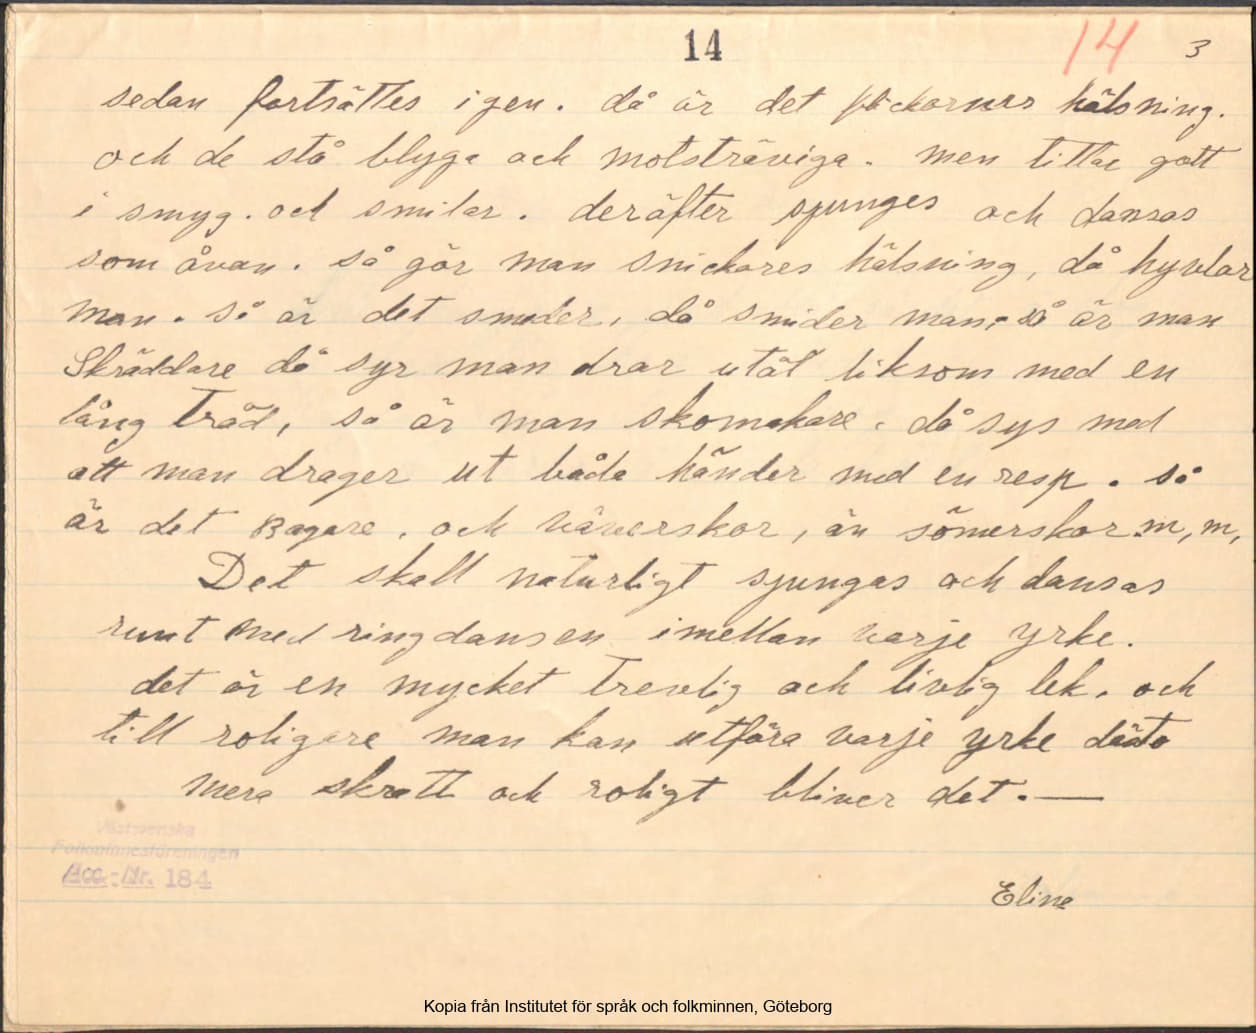 14
14 3
sedan fortsättes igen. då är det flickornas hälsning.
och de stå blyga och motsträviga. men tittar gott
i smyg. och smilar. deräfter sjunges och dansas
som åvan. så gör man snickares hälsning, då hyvlar
man. så är det smeder, då smider man, så är man
Skräddare då syr man drar utåt liksom med en
lång tråd, så är man skomakare. då sys med
att man drager ut båda händer med en resp. så
är det Bagare. och väverskor, än sömerskor m, m,
Det skall naturligt sjungas och dansas
runt med ringdansen imellan varje yrke.
det är en mycket trevlig och livlig lek. och
till roligare man kan utföra varje yrke dästo
mera skratt och roligt bliver det. —
Västsvenska
Folkminnesföreningen
Acc.-Nr. 184
Eline
Kopia från Institutet för språk och folkminnen, Göteborg